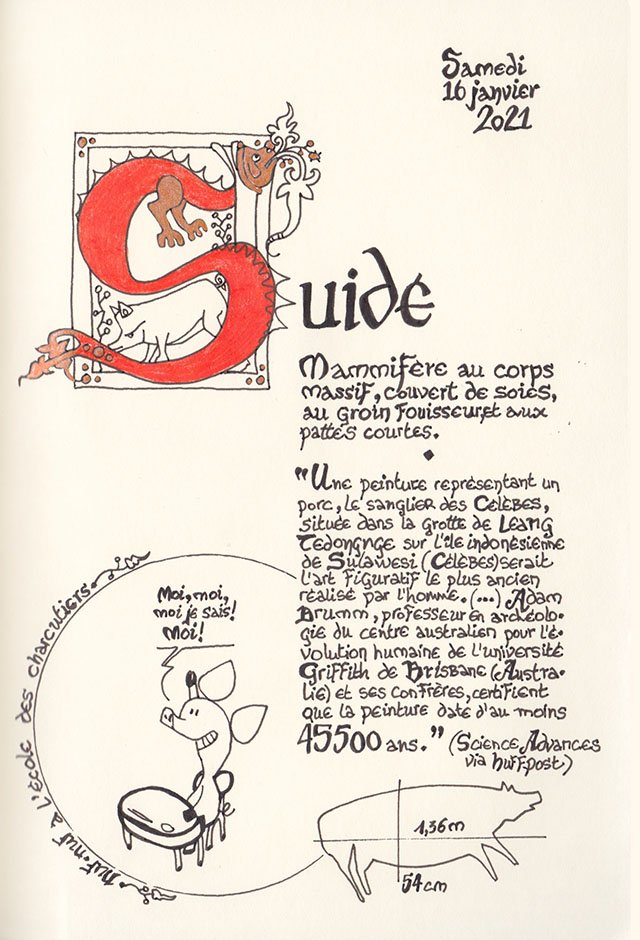 Samedi
16 janvier
2021
Suidé
Mammifère au corps
massif, couvert de soies,
au groin fouisseur, et aux
pattes courtes.
"Une peinture représentant un
porc, le sanglier des Célèbes,
située dans la grotte de Leang
Tedongnge sur l'île indonésienne
de Sulawesi (Célèbes) serait
l'art figuratif le plus ancien
réalisé par l'homme. (...) Adam
Brumm, professeur en archéolo-
gie du centre australien pour l'é-
volution humaine de l'université
Griffith de Brisbane (Austra-
lie) et ses confrères, certifient
que la peinture date d'au moins
45500 ans." (Science Advances
via huff.post)
Moi, moi,
moi je sais!
Moi!
nuf-nuf à l'école des charcutiers
1,36m
54cm